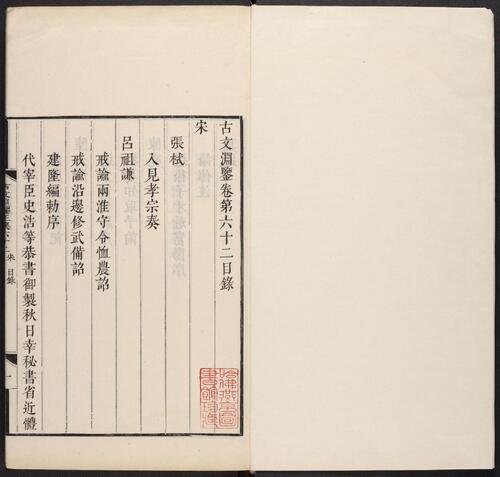 古文淵鑒卷第六十二目錄
宋
張栻
入見孝宗奏
呂祖謙
戒諭兩淮守令恤農詔
戒諭沿邊修武備詔
建隆編勅序
代宰臣史浩等恭書御製秋日幸秘書省近體
宋 目錄
一
哈佛燕京圖
書館珍藏